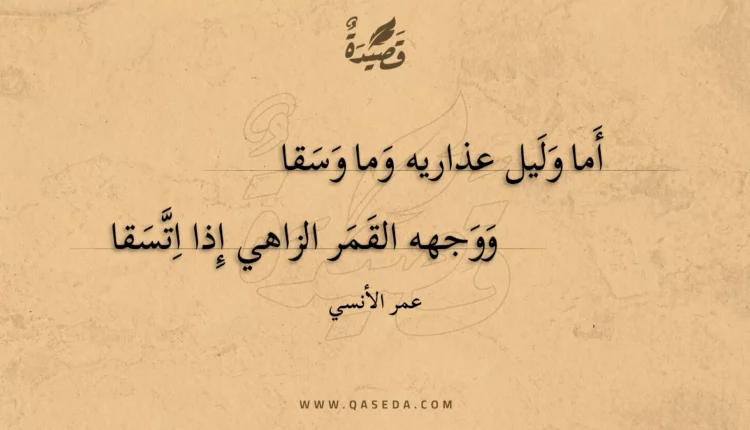 قَصِيْدَةٌ
أَما وَلَيل عذاريه وَما وَسَقا
وَوَجهه القَمَر الزاهي إِذا اِتَّسَقا
عمر الأنسي
WWW.QASEDA.COM